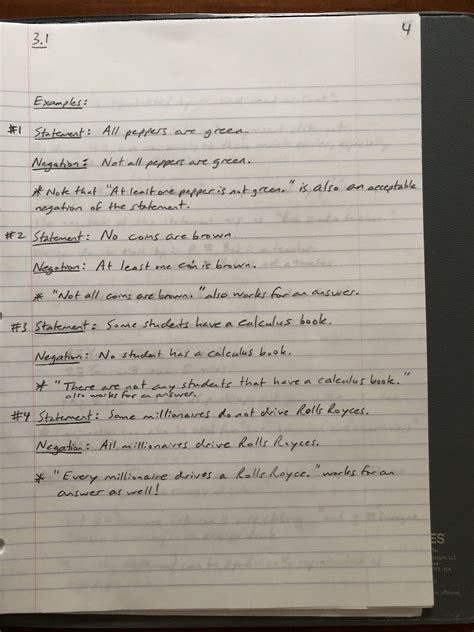 3.1
4
Examples:
#1 Statement: All peppers are green.
Negation: Not all peppers are green.
* Note that "At least one pepper is not green." is also an acceptable
negation of the statement.
#2 Statement: No coins are brown.
Negation: At least one coin is brown.
* "Not all coins are brown." also works for an answer.
#3 Statement: Some students have a calculus book.
Negation: No student has a calculus book.
* "There are not any students that have a calculus book."
also works for an answer.
#4 Statement: Some millionaires do not drive Rolls Royces.
Negation: All millionaires drive Rolls Royces.
* "Every millionaire drives a Rolls Royce." works for an
answer as well!
ES